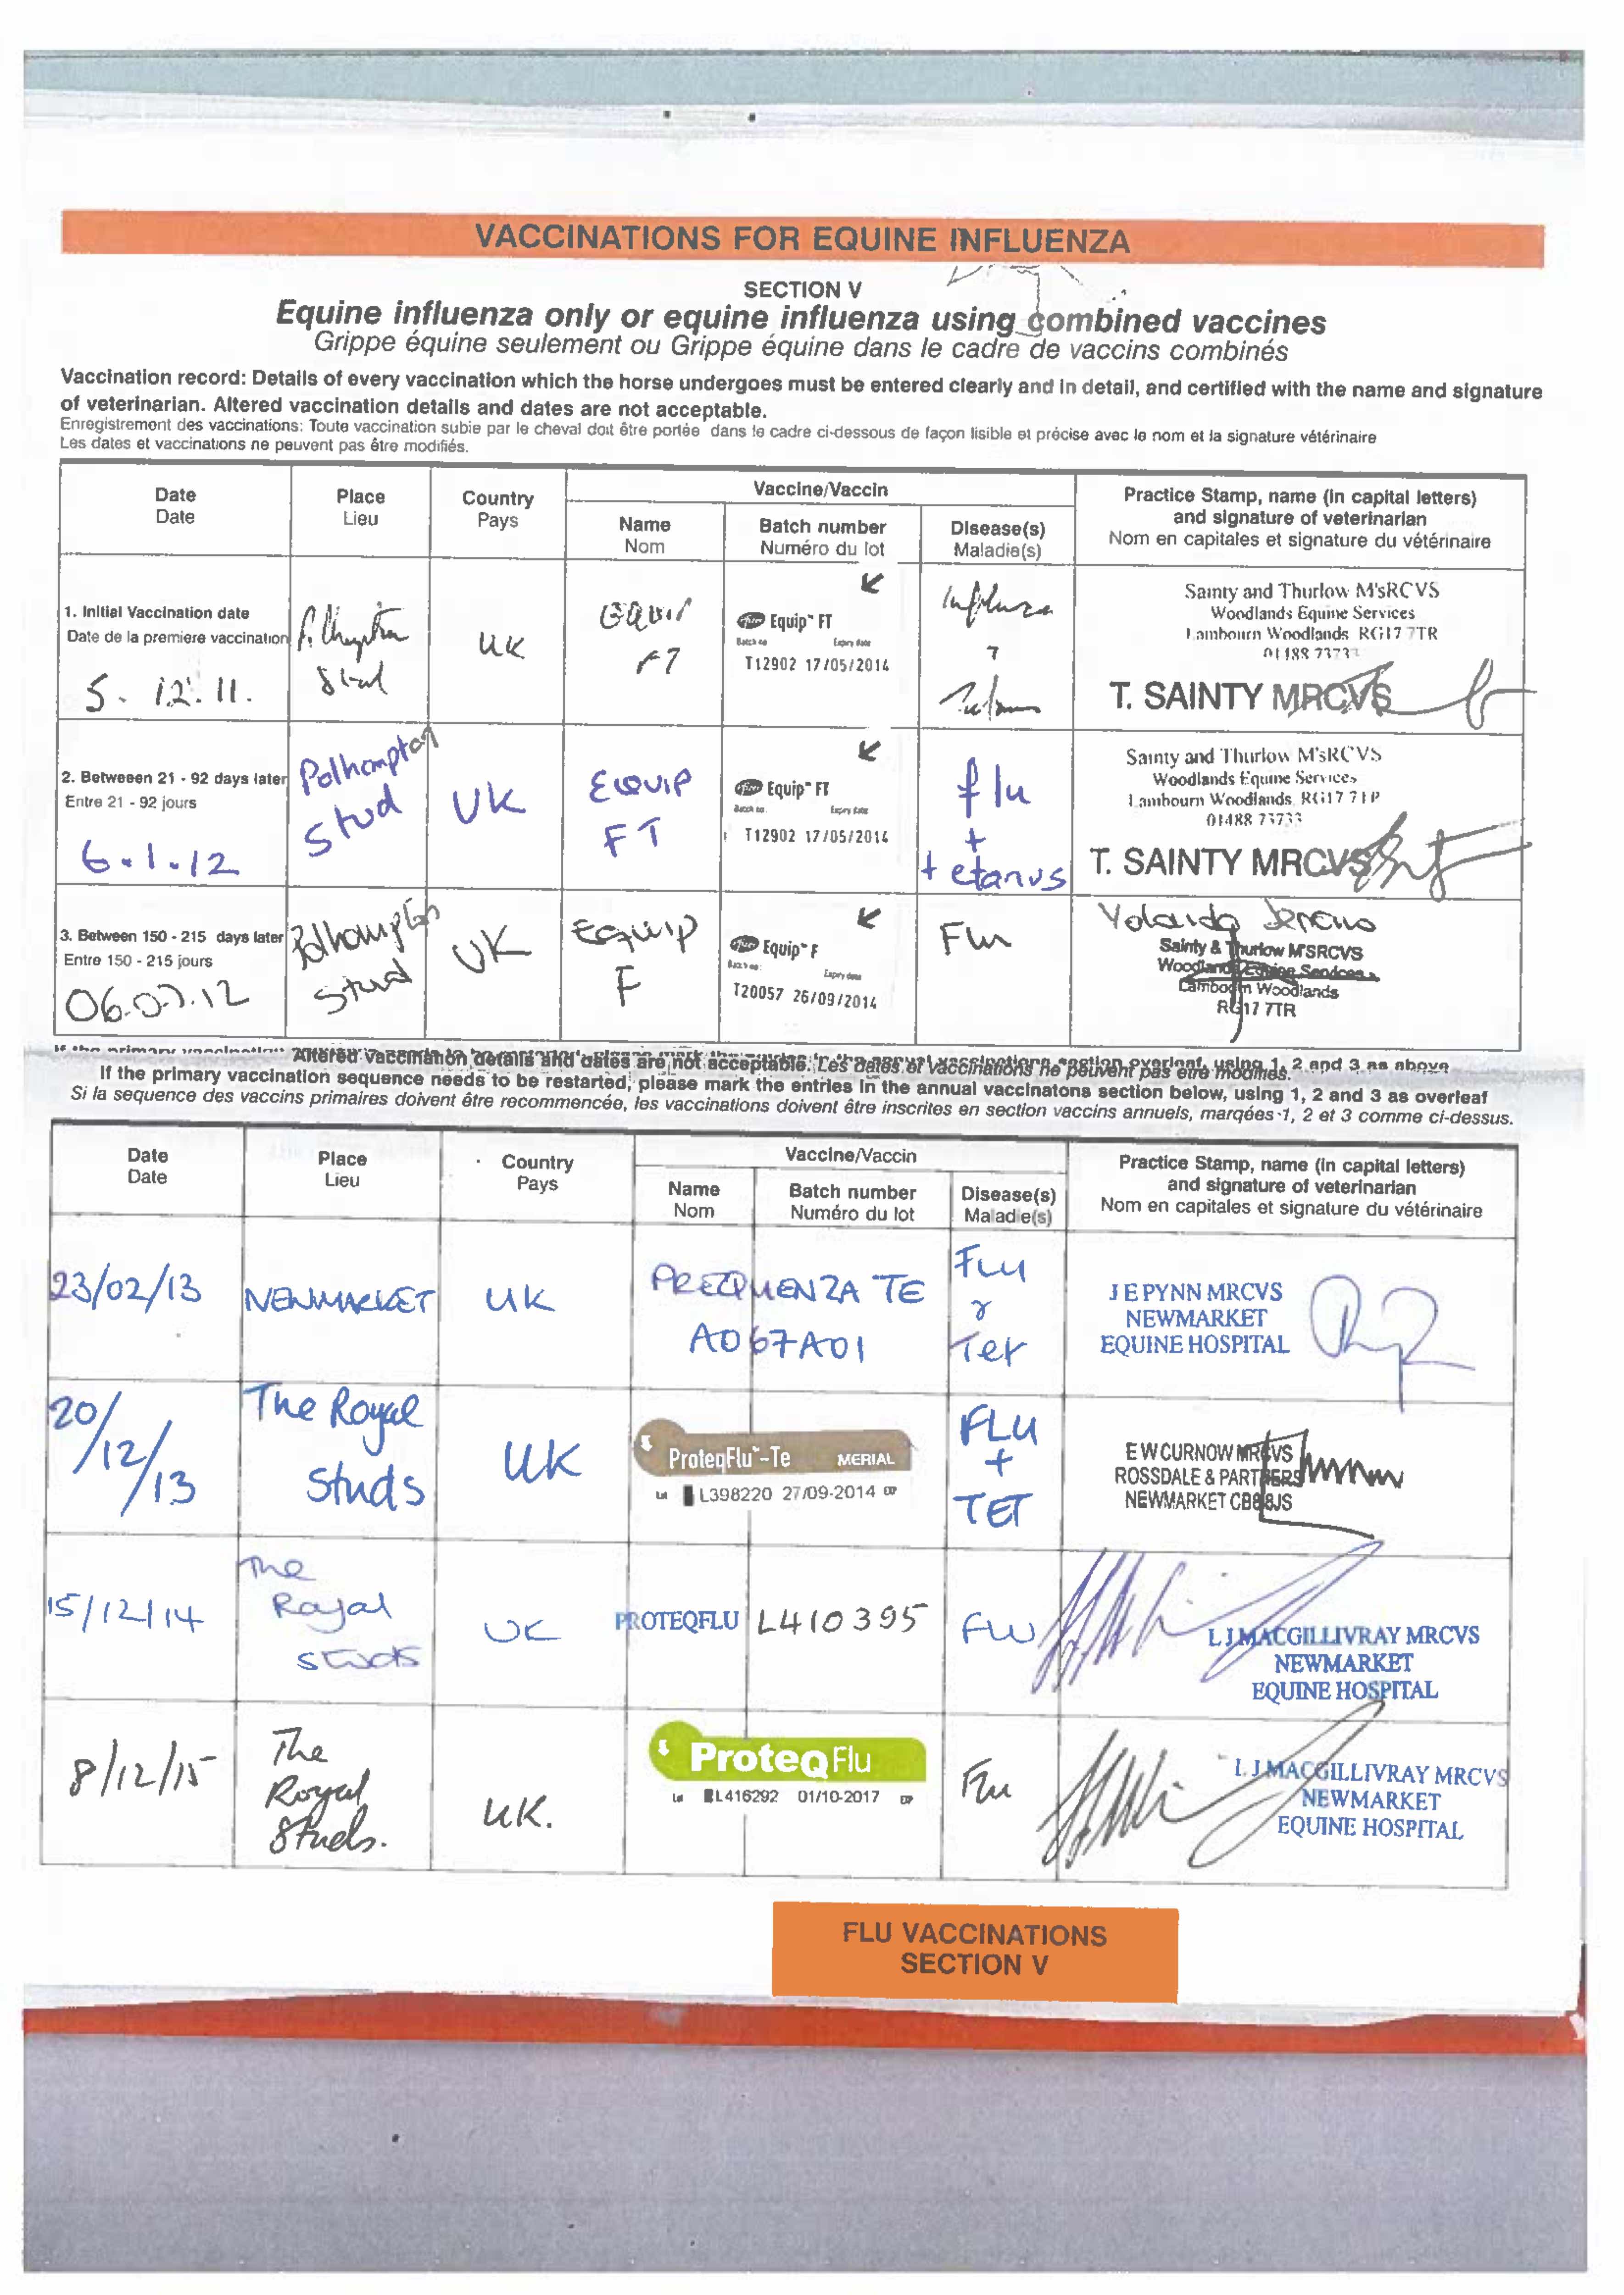 VACCINATIONS FOR EQUINE INFLUENZA
SECTION V
Equine influenza only or equine influenza using combined vaccines
Grippe équine seulement ou Grippe équine dans le cadre de vaccins combinés
Vaccination record: Details of every vaccination which the horse undergoes must be entered clearly and in detail, and certified with the name and signature
of veterinarian. Altered vaccination details and dates are not acceptable.
Enregistrement des vaccinations: Toute vaccination subie par le cheval doit être portée dans le cadre ci-dessous de façon lisible et précise avec le nom et la signature vétérinaire
Les dates et vaccinations ne peuvent pas être modifiés.
Date
Date
Place
Lieu
Country
Pays
Vaccine/Vaccin
Name
Nom
Batch number
Numéro du lot
Disease(s)
Maladie(s)
Practice Stamp, name (in capital letters)
and signature of veterinarian
Nom en capitales et signature du vétérinaire
1. Initial Vaccination date
Date de la premiere vaccination
5. 12. 11.
Stud
UK
EQUIP
FT
Equip™ FT
Batch no Expiry date
T12902 17/05/2014
Influenza
Sainty and Thurlow M'sRCVS
Woodlands Equine Services
Lambourn Woodlands RG17 7TR
01488 7373
T. SAINTY MRCVS
2. Betweeen 21 - 92 days later
Entre 21 - 92 jours
6.1.12
Polhampton
Stud
UK
EQUIP
FT
Equip™ FT
Batch no. Expiry date
T12902 17/05/2014
flu
+
tetanus
Sainty and Thurlow M'sRCVS
Woodlands Equine Services
Lambourn Woodlands, RG17 7TP
01488 73733
T. SAINTY MRCVS
3. Between 150 - 215 days later
Entre 150 - 215 jours
06.07.12
Polhampton
Stud
UK
Equip
F
Equip™ F
Batch no: Expiry date
T20057 26/09/2014
Flu
Yolanda
Sainty & Thurlow M'SRCVS
Woodland Equine Services
Lambourn Woodlands
RG17 7TR
Altered vaccination details and dates are not acceptable. Les dates et vaccinations ne peuvent pas être modifiés.
If the primary vaccination sequence needs to be restarted, please mark the entries in the annual vaccinatons section below, using 1, 2 and 3 as overleaf
Si la sequence des vaccins primaires doivent être recommencée, les vaccinations doivent être inscrites en section vaccins annuels, marqées 1, 2 et 3 comme ci-dessus.
Date
Date
Place
Lieu
Country
Pays
Vaccine/Vaccin
Name
Nom
Batch number
Numéro du lot
Disease(s)
Maladie(s)
Practice Stamp, name (in capital letters)
and signature of veterinarian
Nom en capitales et signature du vétérinaire
23/02/13
NEWMARKET
UK
PREQUENZA TE
A067A01
Flu
&
Tet
J E PYNN MRCVS
NEWMARKET
EQUINE HOSPITAL
20/12/13
The Royal
Studs
UK
ProteqFlu™-Te MERIAL
Lot L398220 27/09-2014 EXP
FLU
+
TET
E W CURNOW MRCVS
ROSSDALE & PARTNERS
NEWMARKET CB8 8JS
15/12/14
The
Royal
Studs
UK
PROTEQFLU
L410395
FLU
L J MACGILLIVRAY MRCVS
NEWMARKET
EQUINE HOSPITAL
8/12/15
The
Royal
Studs.
UK.
ProteqFlu
Lot L416292 01/10-2017 EXP
Flu
L J MACGILLIVRAY MRCVS
NEWMARKET
EQUINE HOSPITAL
FLU VACCINATIONS
SECTION V